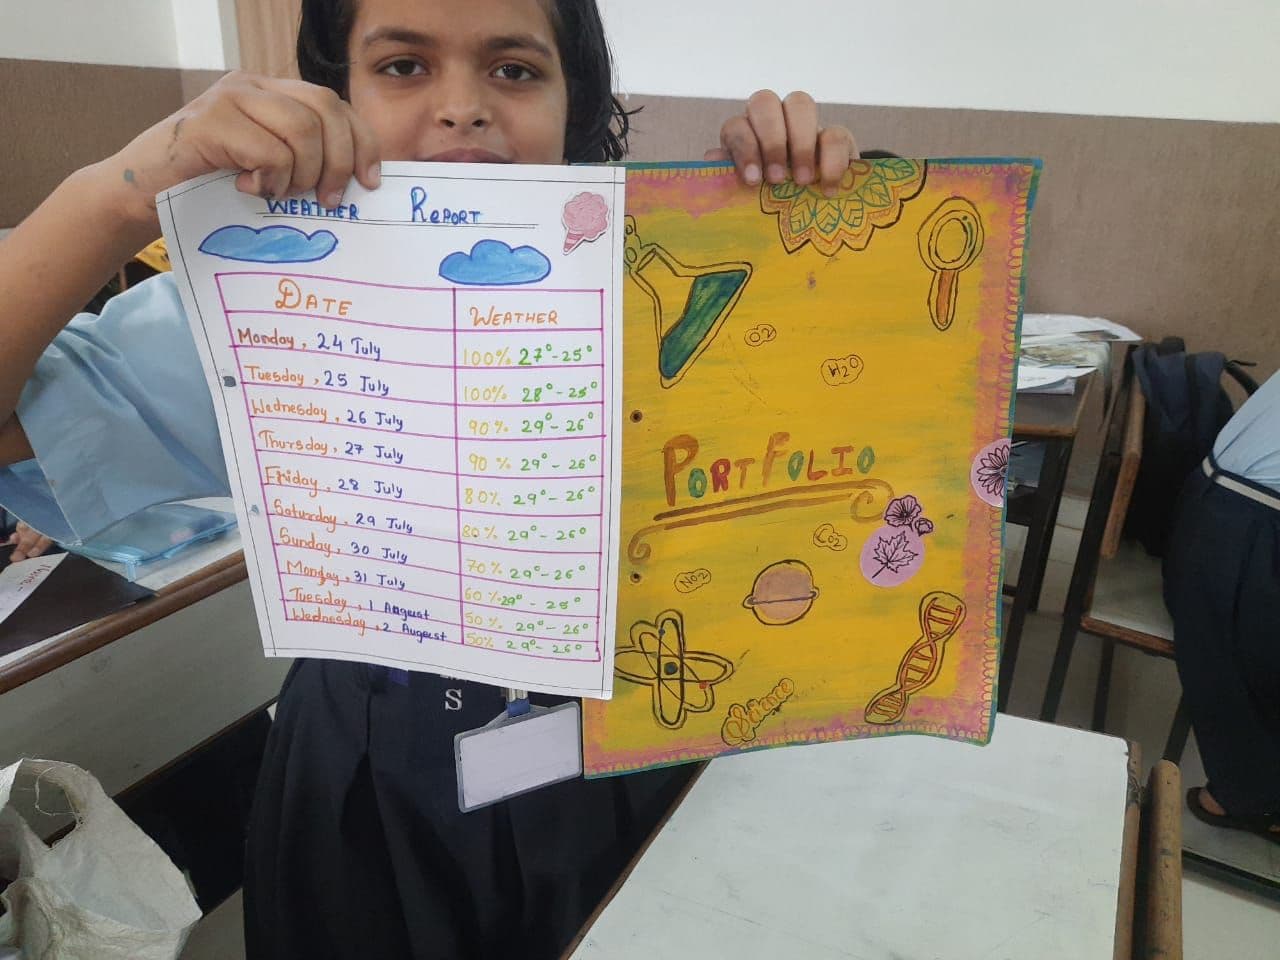 WEATHER REPORT
DATE WEATHER
Monday, 24 July 100% 27°-25°
Tuesday, 25 July 100% 28°-25°
Wednesday, 26 July 90% 29°-26°
Thursday, 27 July 90% 29°-26°
Friday, 28 July 80% 29°-26°
Saturday, 29 July 80% 29°-26°
Sunday, 30 July 70% 29°-26°
Monday, 31 July 60% 29°-25°
Tuesday, 1 August 50% 29°-26°
Wednesday, 2 August 50% 29°-26°
O2
H2O
PORTFOLIO
CO2
NO2
Science
S